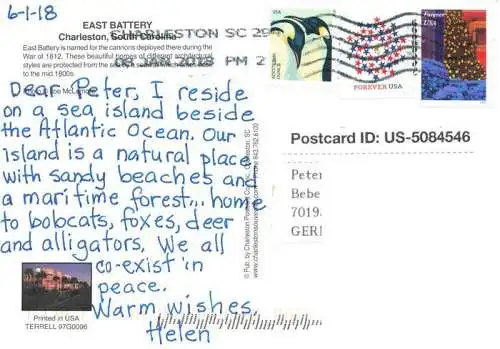 6-1-18
EAST BATTERY
Charleston, South Carolina
East Battery is named for the cannons deployed there during the
War of 1812. These beautiful homes of different architectural
styles are protected from the sea by a
to the mid 1800s.
CHARLESTON SC 294
JAN 2018 PM 2
Dear Peter, I reside
on a sea island beside
the Atlantic Ocean. Our
island is a natural place
with sandy beaches and
a maritime forest... home
to bobcats, foxes, deer
and alligators. We all
co-exist in
peace.
Warm wishes,
Helen
Printed in USA
TERRELL 97G0096
© Pub. by Charleston Postcard Co., Inc., Charleston, SC
Phone 843.762.6103
FOREVER USA
Forever
USA
Postcard ID: US-5084546
Peter
Bebe
7019
GER